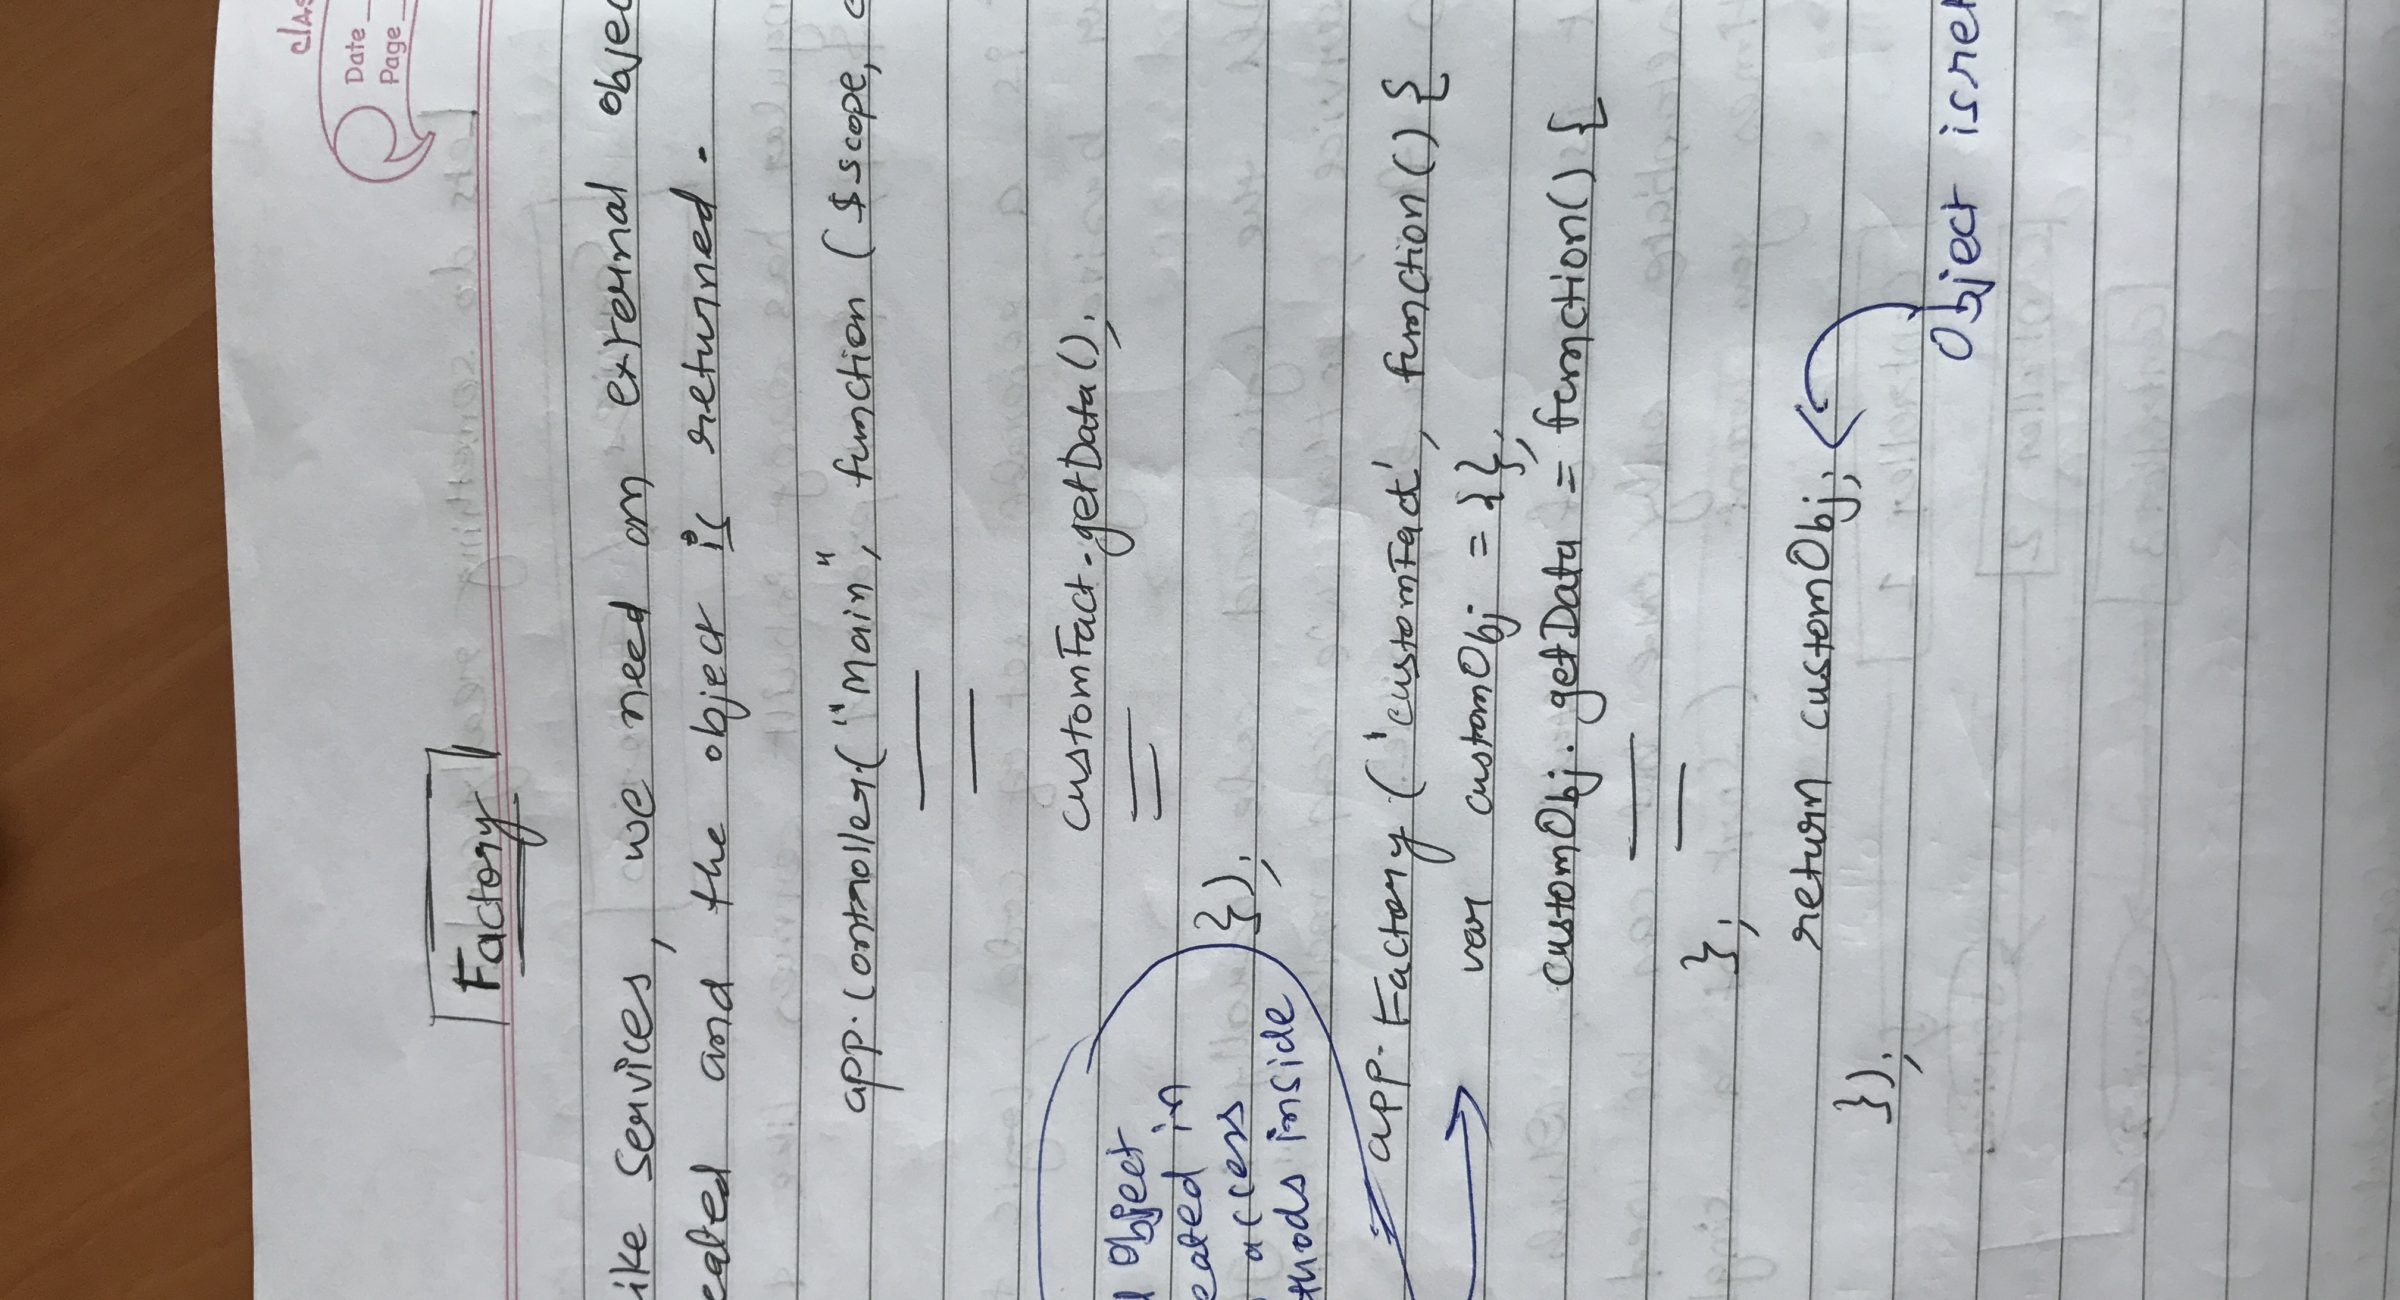 clas
Date
Page
Factory
ike Services, we need an external objec
eated and the object is returned.
app.controller("Main", function ($scope, c
customFact.getData();
Object
eated in
access
thods inside
});
app.Factory('customFact', function() {
var customObj = {};
customObj.getData = function() {
};
return customObj;
});
Object is ret